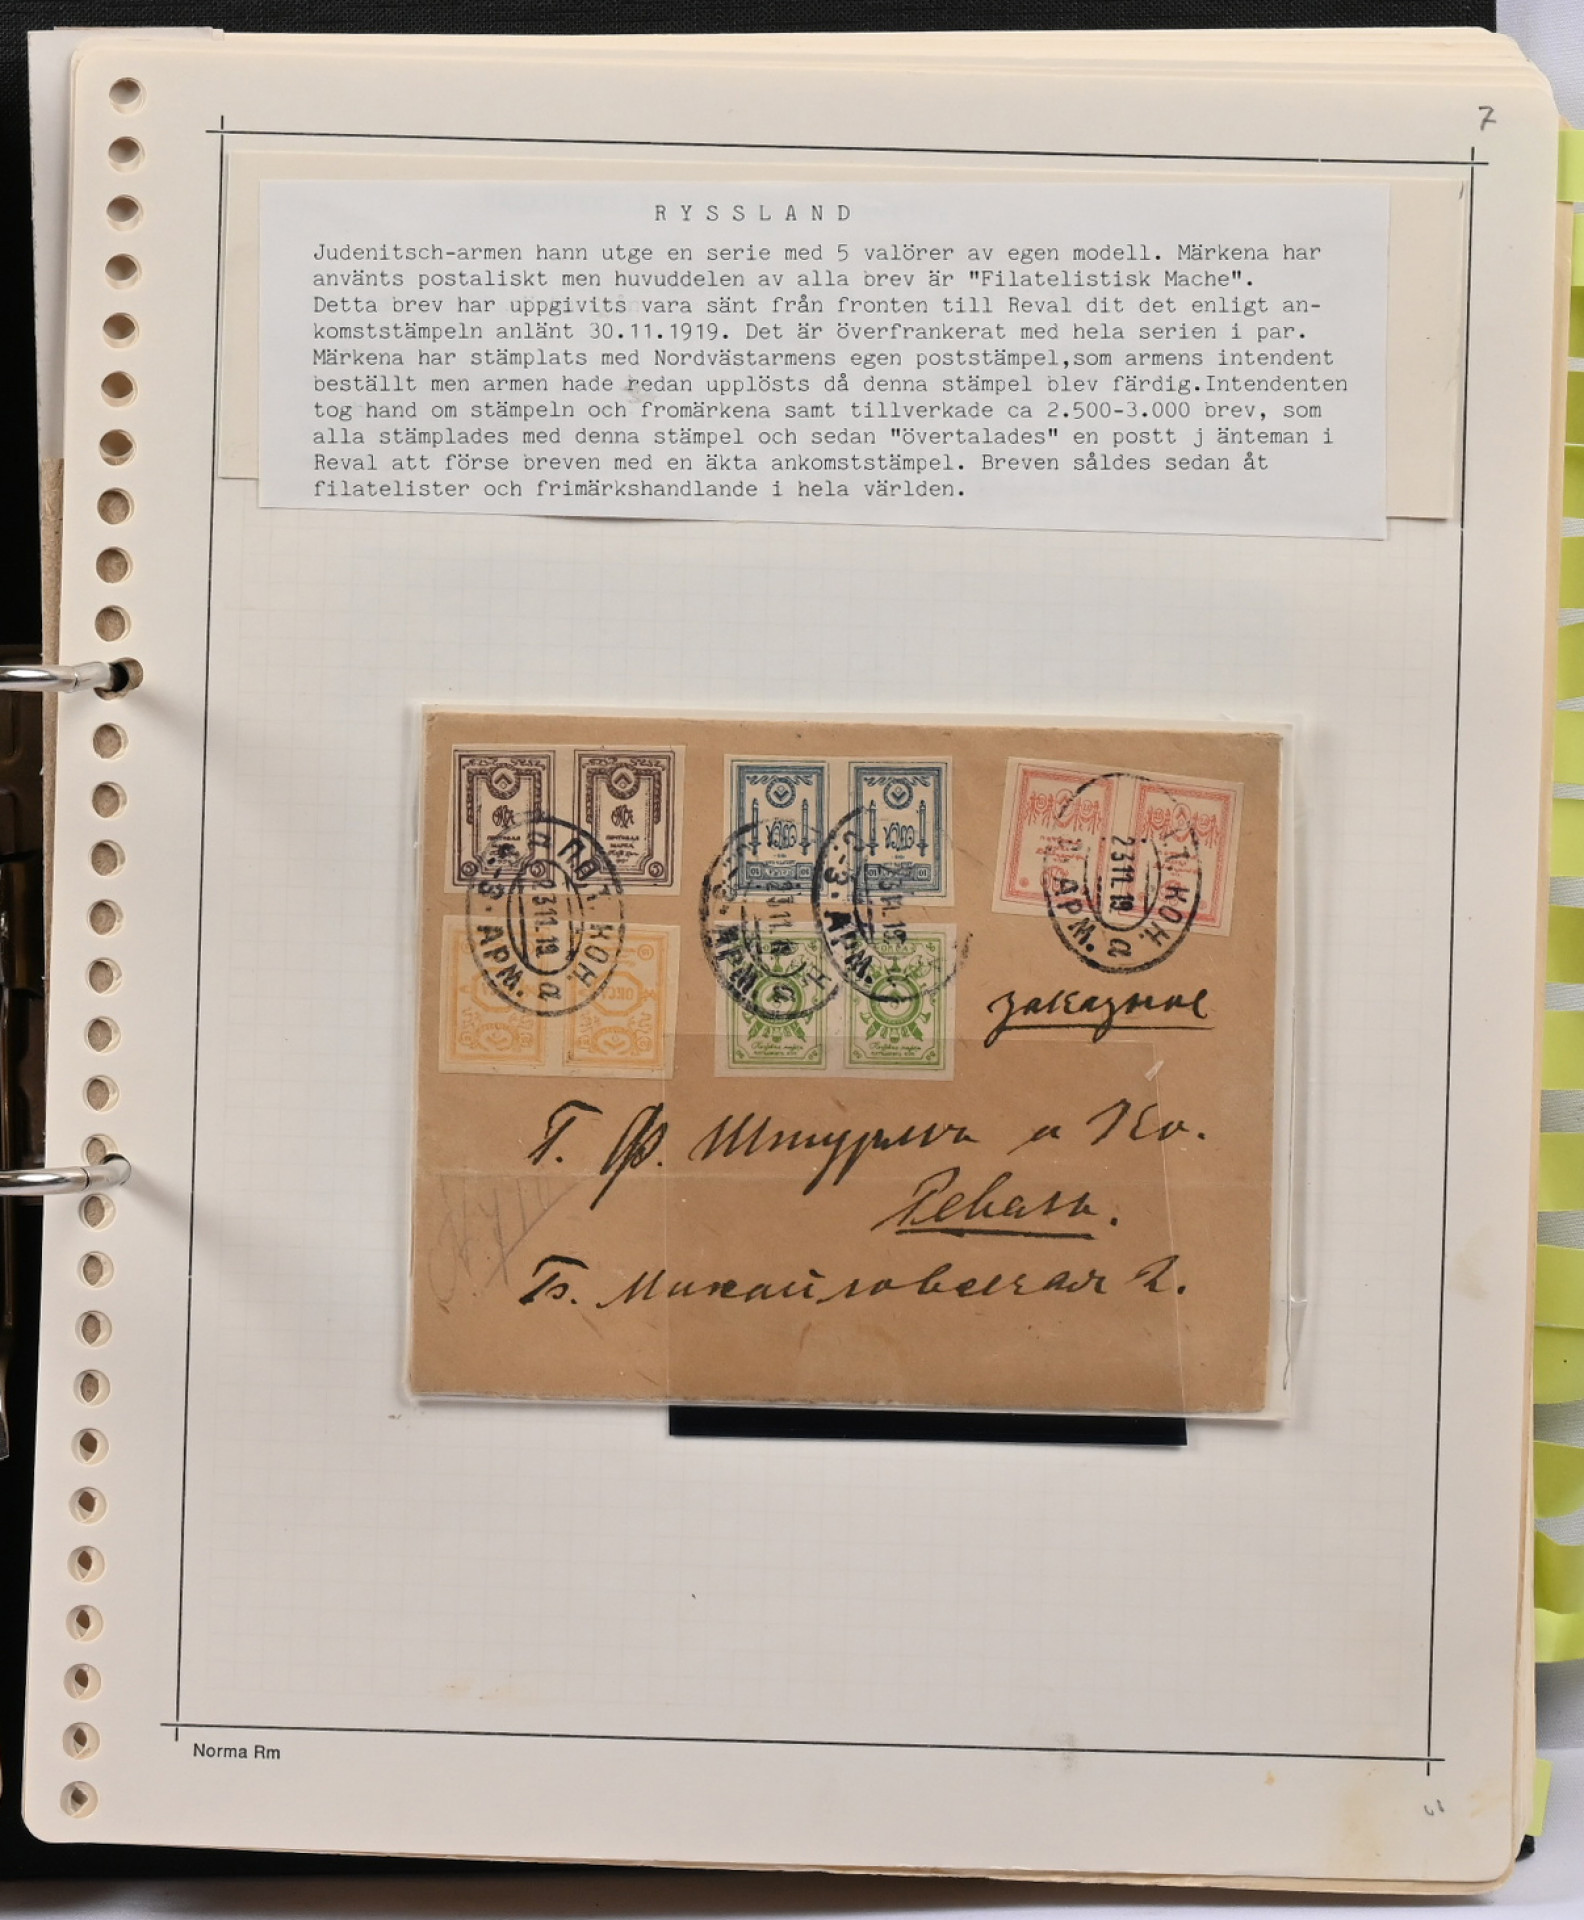 7
RYSSLAND
Judenitsch-armen hann utge en serie med 5 valörer av egen modell. Märkena har
använts postaliskt men huvuddelen av alla brev är "Filatelistisk Mache".
Detta brev har uppgivits vara sänt från fronten till Reval dit det enligt an-
komststämpeln anlänt 30.11.1919. Det är överfrankerat med hela serien i par.
Märkena har stämplats med Nordvästarmens egen poststämpel,som armens intendent
beställt men armen hade redan upplösts då denna stämpel blev färdig.Intendenten
tog hand om stämpeln och fromärkena samt tillverkade ca 2.500-3.000 brev, som
alla stämplades med denna stämpel och sedan "övertalades" en postt j änteman i
Reval att förse breven med en äkta ankomststämpel. Breven såldes sedan åt
filatelister och frimärkshandlande i hela världen.
ПОЛ. КОН. С.-З. АРМ.
23.11.19
С.-З. АРМ.
23.11.19
С.-З. АРМ.
23.11.19
КОН. АРМ.
23.11.19
ОКСА
заказное
Г. Ф. Штурмъ и Ко.
Ревель.
Б. Михайловская 2.
Norma Rm